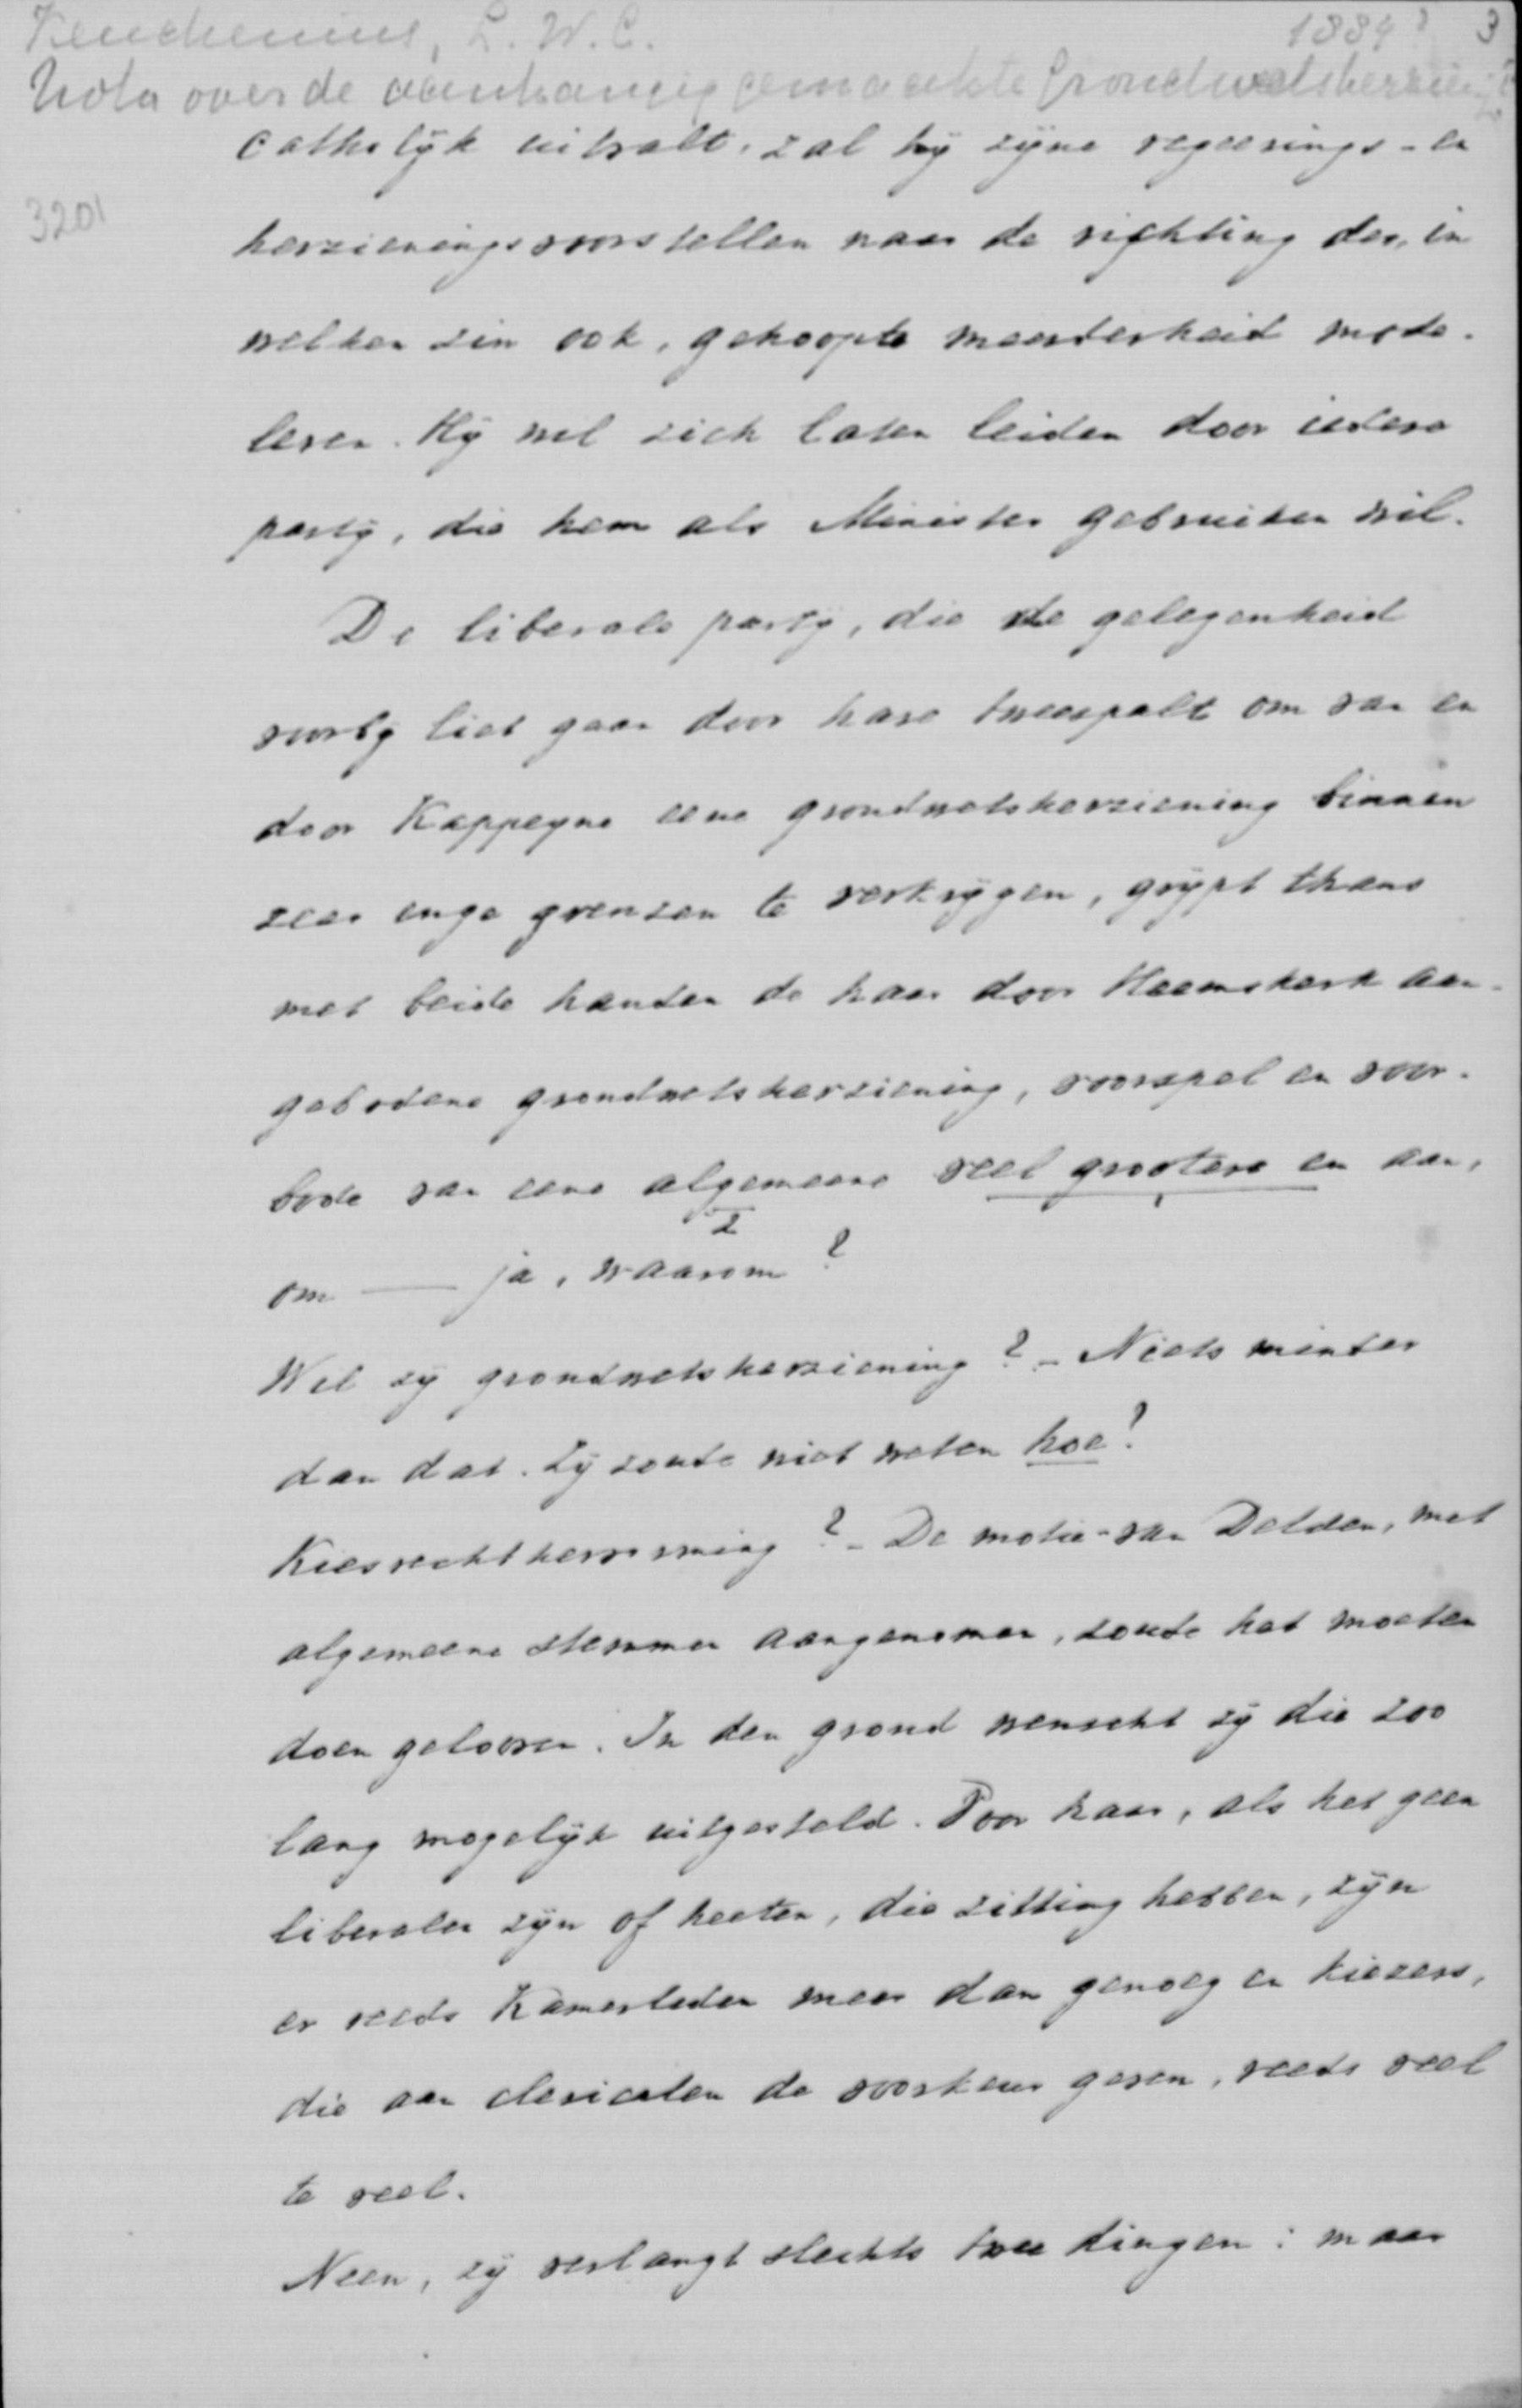 Keuchenius, L. W. C. 1884? 3
Nota over de aanhangig gemaakte Grondwetsherziening
catholijk uitvalt, zal hij zijne regeerings- en
3201
herzieningsvoorstellen naar de richting der, in
welken zin ook, gehoopte meerderheid mode-
leren. Hij wil zich laten leiden door iedere
partij, die hem als Minister gebruiken wil.
De liberale partij, die de gelegenheid
voorbij liet gaan door hare tweespalt om van en
door Kappeyne eene grondwetsherziening binnen
zeer enge grenzen te verkrijgen, grijpt thans
met beide handen de haar door Heemskerk aan-
gebodene grondwetsherziening, voorspel en voor-
bode van eene algemeene veel grootere en aan,
2 1
om — ja, waarom?
Wil zij grondwetsherziening? - Niets minder
dan dat. Zij zoude niet weten hoe?
Kiesrechthervorming? - De motie-van Delden, met
algemeene stemmen aangenomen, zoude het moeten
doen gelooven. In den grond wenscht zij die zoo
lang mogelijk uitgesteld. Voor haar, als het geen
liberalen zijn of heeten, die zitting hebben, zijn
er reeds Kamerleden meer dan genoeg en kiezers,
die aan clericalen de voorkeur geven, reeds veel
te veel.
Neen, zij verlangt slechts twee dingen: maar